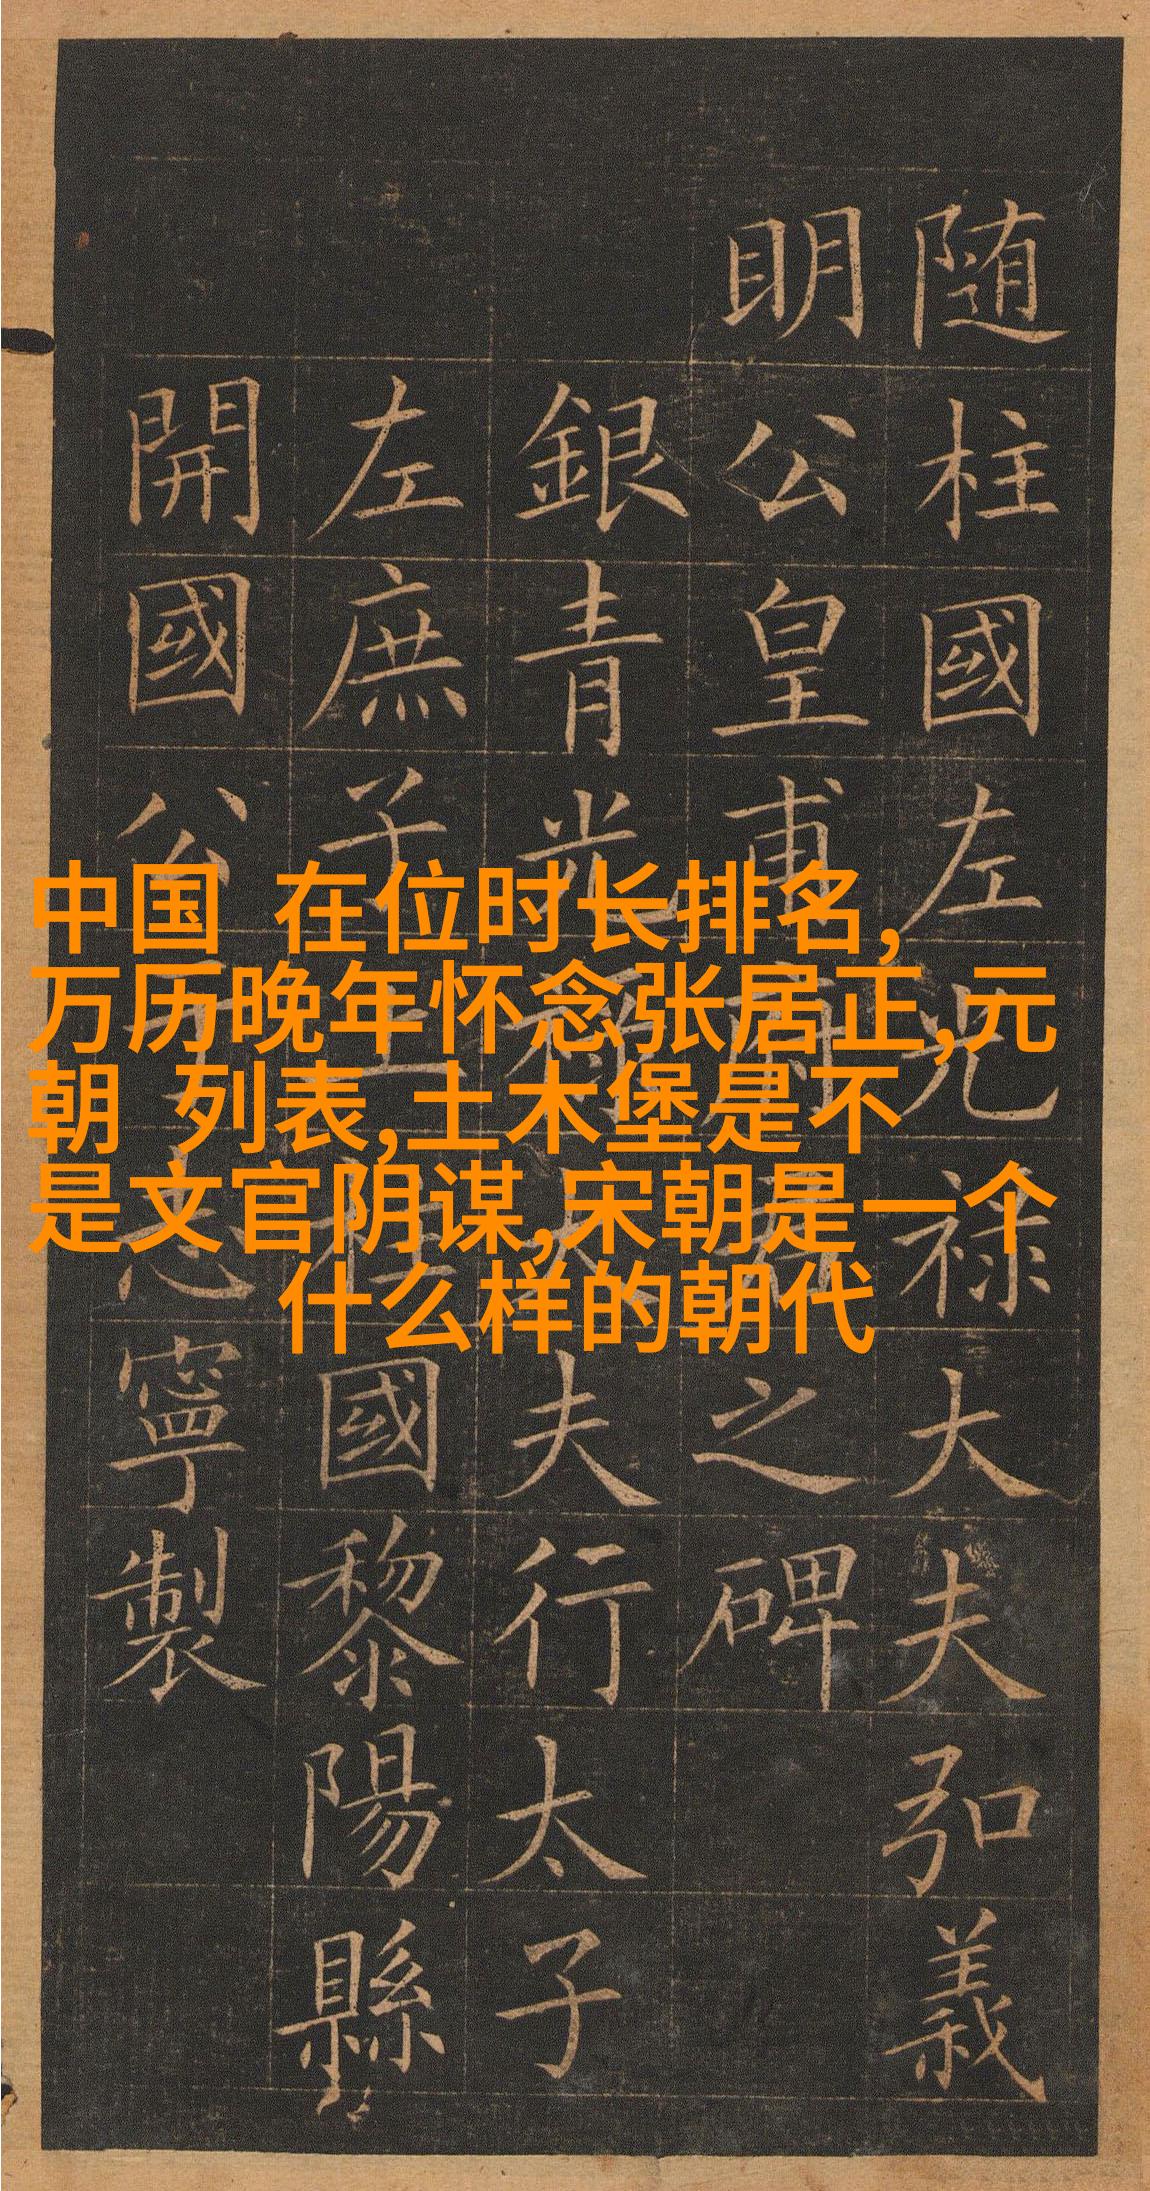 中国 在位时长排名,
万历晚年怀念张居正,元
朝 列表,土木堡是不
是文官阴谋,宋朝是一个
什么样的朝代
随柱國左光禄大夫弘義
明公皇甫府君之碑
銀青光禄大夫行太子
左庶子上柱國黎陽縣
開國公于志寧製